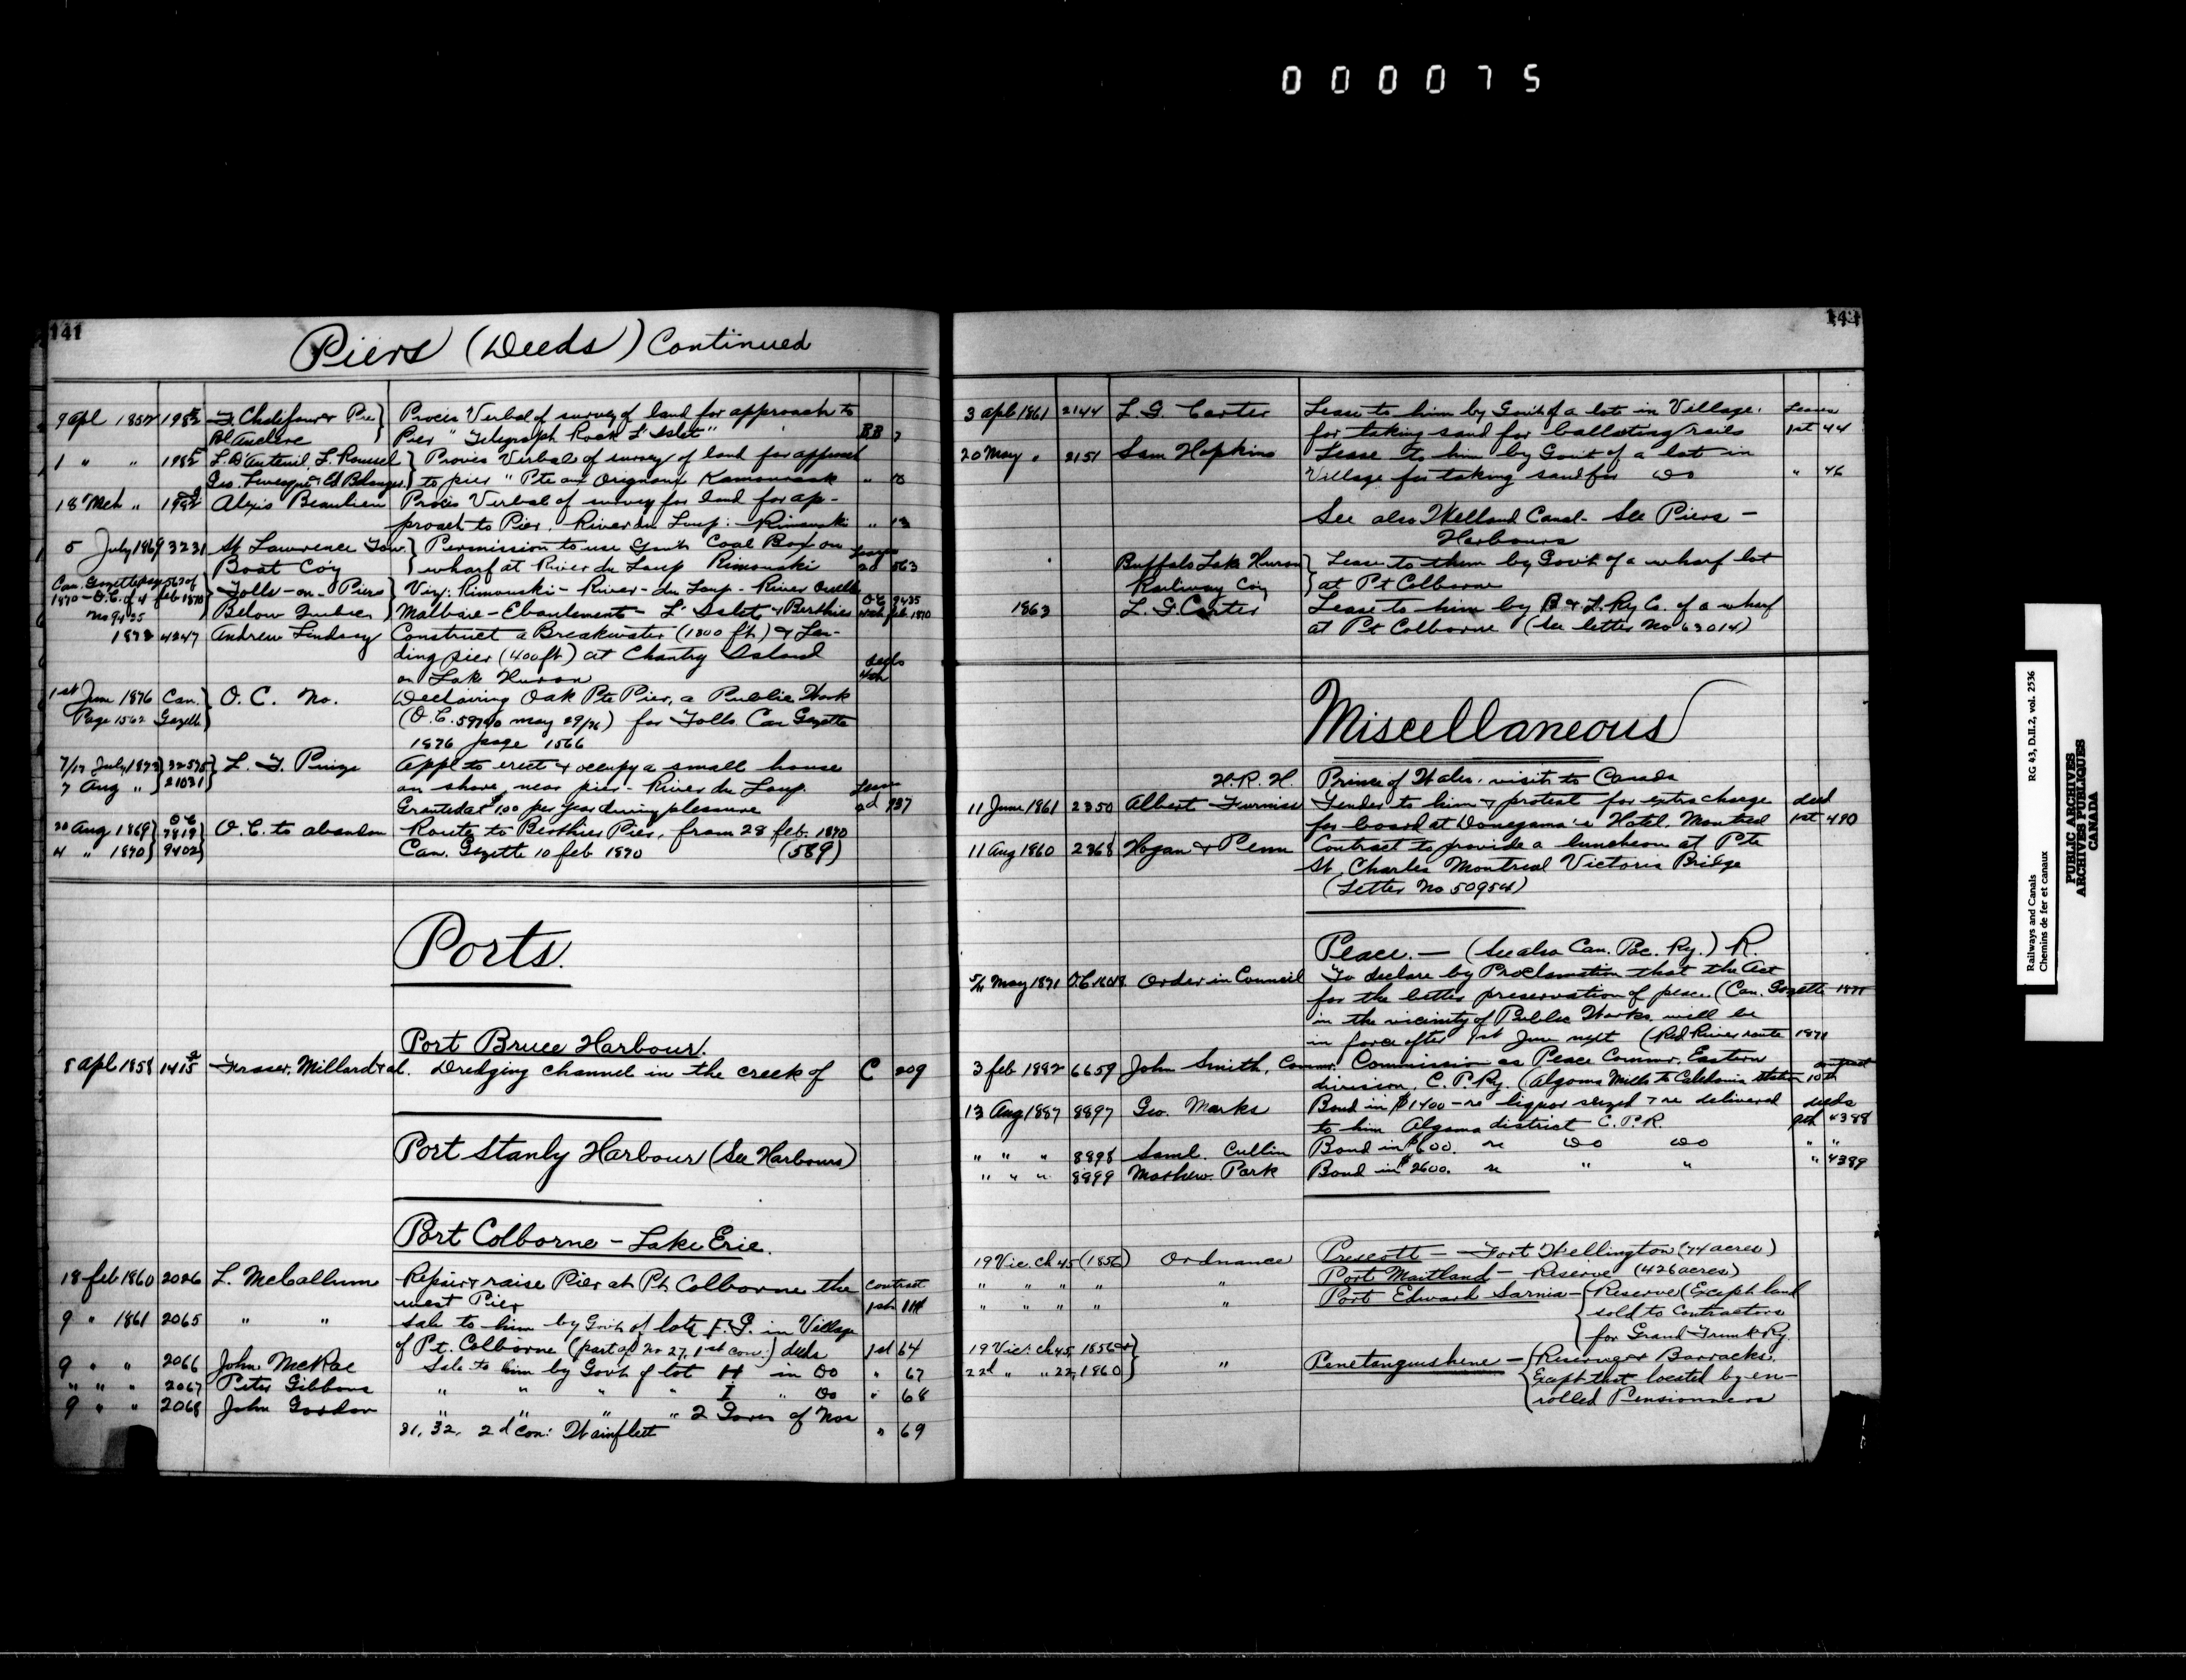 000075
141
Piers (Deeds) Continued
9 Apl 1857 198 Pre Procès Verbal of survey of land for approach to
Anclere Pier " Telegraph Rock L'Islet " BB 7
1 " " 198 L. D'Auteuil, F. Roussel Procès Verbal of survey of land for approach
Geo. Levesque & Belanger to pier " Pte aux Orignaux Kamouraska " 10
18 Mch " 198 Alexis Beaulieu Procès Verbal of survey for land for ap-
proach to Pier. River du Loup: Rimouski " 13
5 July 1869 3231 St Lawrence Tow Permission to use Govt Coal Box on
Boat Coy wharf at River du Loup Rimouski Leases 2d 563
Can. Gazette page 567 of
1870 - O.C. of 4 feb 1870 Tolls - on - Piers Viz: Rimouski - River - du Loup - River Ouelle
No 9435 Below Quebec Malbaie - Eboulements - L'Islet & Berthier O.C. 9435 feb 1870
1872 4247 Andrew Lindsay Construct a Breakwater (1800 ft) & Lan-
ding pier (400 ft) at Chantry Island
on Lake Huron deeds 4th
1st June 1876 Can. O. C. No. Declaring Oak Pte Pier, a Public Work
Page 1562 Gazette (O.C. 59740 may 29/76) for Tolls. Can Gazette
1876 page 1566
7/17 July 1873 32575 L. T. Puize Appl to erect & occupy a small house
7 Aug " 21031 on shore, near pier - River du Loup. Leases
Granted at $1.00 per year during pleasure 2d 737
20 Aug 1869 O C 7819 O.C. to abandon Route to Berthier Pier, from 28 feb. 1870
4 " 1870 9402 Can. Gazette 10 feb 1870 (589)
Ports.
Port Bruce Harbour.
8 Apl 1858 1415 Fraser, Millard & al. Dredging channel in the creek of C 209
Port Stanly Harbour (See Harbours)
Port Colborne - Lake Erie.
18 feb 1860 2026 L. McCallum Repair & raise Pier at Pt Colborne the contract
west Pier 1st 114
9 " 1861 2065 " " Sale to him by Govt of lots F. G. in Village
of Pt. Colborne (part of no 27, 1st con:) deeds 1st 64
9 " " 2066 John McRae Sale to him by Govt of lot H in Do " 67
" " " 2067 Peter Gibbons " " " " I " Do " 68
9 " " 2068 John Gordon " " " " 2 Gores of Nos
31, 32, 2d con: Wainfleet " 69
141
3 apl 1861 2144 L. G. Carter Lease to him by Govt of a lot in Village. Leases
for taking sand for ballasting rails 1st 44
20 May " 2151 Sam Hopkins Lease to him by Govt of a lot in
Village for taking sand for Do " 46
See also Welland Canal - See Piers -
Harbours
Buffalo Lake Huron Lease to them by Govt of a wharf lot
Railway Coy at Pt Colborne
1863 L. G. Carter Lease to him by B & L. Ry Co. of a wharf
at Pt Colborne (See letter No 63014)
Miscellaneous
H. R. H. Prince of Wales, visit to Canada
11 June 1861 2350 Albert Furniss Tender to him & protest for extra charge deed
for board at Donegana's Hotel. Montreal 1st 490
11 Aug 1860 2368 Hogan & Penn Contract to provide a luncheon at Pte
St. Charles Montreal Victoria Bridge
(Letter No 50954)
Peace. - (See also Can. Pac. Ry.) R.
5/11 May 1871 O.C. Order in Council To declare by Proclamation that the Act
for the better preservation of peace (Can. Gazette 1871
in the vicinity of Public Works, will be
in force after 1st June next (Red River route 1871
3 feb 1882 6659 John Smith, Commr. Commission as Peace Commr. Eastern
division, C. P. Ry. (Algoma Mills to Caledonia station 10th
13 Aug 1887 8897 Geo. Marks Bond in $1400 - re liquor seized & re delivered deeds
to him Algoma district C. P. R. 9th 4388
" " " 8898 Saml. Cullin Bond in $600. re Do Do " "
" " " 8899 Mathew. Park Bond in $2600. re " " " 4389
19 Vic. ch 45 (1856) Ordnance Prescott - Fort Wellington (74 acres)
" " " " " Port Maitland - Reserve (426 acres)
" " " " " Port Edward Sarnia - Reserve (Except land
sold to Contractors
for Grand Trunk Ry.
19 Vic: ch 45, 1856 & " Penetanguishene - Reserve & Barracks.
22d " " 22, 1860 Except that located by en-
rolled Pensionners
Railways and Canals RG 43, D.II.2, vol. 2536
Chemins de fer et canaux
PUBLIC ARCHIVES
ARCHIVES PUBLIQUES
CANADA